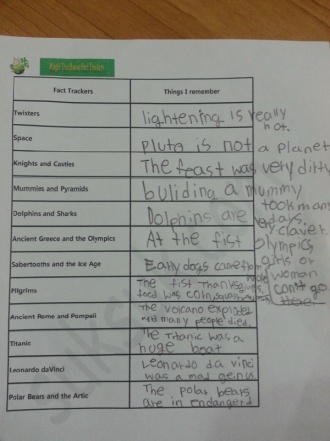 Magic Tree House Fact Trackers
Fact Trackers Things I remember
Twisters lightening is really hot.
Space pluto is not a planet
Knights and Castles The feast was very dirty
Mummies and Pyramids buliding a mummy took many days.
Dolphins and Sharks Dolphins are very claver.
Ancient Greece and the Olympics At the fist olympics girls or woman con't go there
Sabertooths and the Ice Age Early dogs came from
Pilgrims The fist Thanksgiving food was
Ancient Rome and Pompeii The volcano exploded and many people died.
Titanic The Titanic was a huge boat
Leonardo daVinci Leonardo da vinci was a mad genius
Polar Bears and the Artic The polar bears are in endangerd